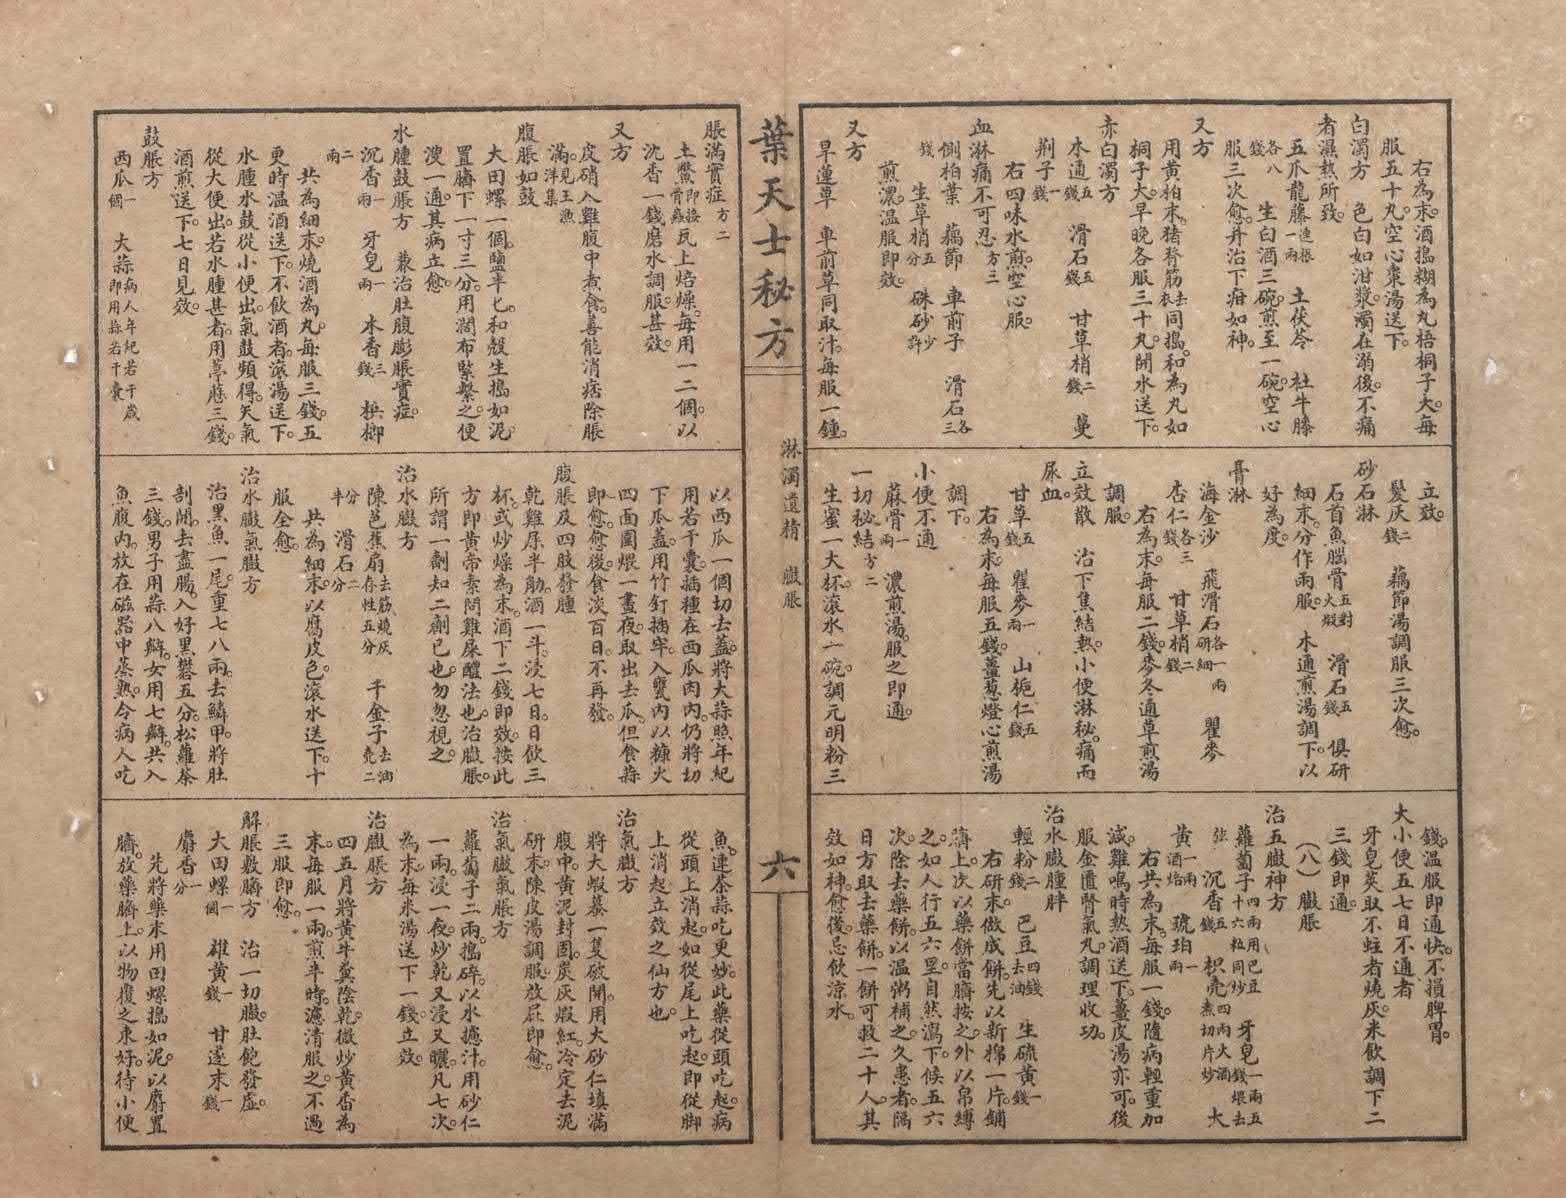 右為末。酒搗糊為丸梧桐子大。每
服五十丸。空心棗湯送下。
白濁方　色白如泔漿。濁在溺後。不痛
者濕熱所致。
五爪龍藤連根一兩　土茯苓　杜牛膝
各八錢　生白酒三碗。煎至一碗。空心
服三次愈。并治下疳如神。
又方
用黃柏末。猪脊筋去衣同搗。和為丸如
桐子大。早晚各服三十丸。開水送下。
赤白濁方
木通五錢　滑石五錢　甘草梢二錢　蔓
荊子一錢
右四味水煎。空心服。
血淋痛不可忍方二
側柏葉　藕節　車前子　滑石各三
錢　生草梢五分　硃砂少許
煎濃。溫服即效。
又方
旱蓮草　車前草同取汁。每服一鍾。
立效。
髮灰二錢　藕節湯調服三次愈。
砂石淋
石首魚腦骨五對火煅　滑石五錢　俱研
細末。分作兩服。木通煎湯調下。以
好為度。
膏淋
海金沙　飛滑石各一兩研細　瞿麥
杏仁各三錢　甘草梢二錢
右為末。每服二錢。麥冬通草煎湯
調服。
立效散　治下焦結熱。小便淋秘。痛而
尿血。
甘草五錢　瞿麥一兩　山梔仁五錢
右為末。每服五錢。薑葱燈心煎湯
調下。
小便不通
蔴骨一兩　濃煎湯。服之即通。
一切秘結方二
生蜜一大杯。滾水一碗。調元明粉三
錢。溫服即通快。不損脾胃。
大小便五七日不通者
牙皂莢取不蛀者燒灰。米飲調下二
三錢即通。
(八)　臌脹
治五臌神方
蘿蔔子四兩用巴豆十六粒同炒　牙皂一兩五錢煨去
弦　沉香五錢　枳壳四兩火酒煮切片炒　大
黃一兩酒焙　琥珀一兩
右共為末。每服一錢。隨病輕重加
減。雞鳴時熱酒送下。薑皮湯亦可。後
服金匱腎氣丸。調理收功。
治水臌腫胖
輕粉二錢　巴豆四錢去油　生硫黃一錢
右研末。做成餅。先以新棉一片。鋪
臍上。次以藥餅當臍按之。外以帛縛
之。如人行五六里。自然瀉下。候五六
次。除去藥餅。以溫粥補之。久患者。隔
日方取去藥餅。一餅可救二十人。其
效如神。愈後忌飲涼水。
葉天士秘方
淋濁遺精　臌脹
六
脹滿實症方二
土鱉即接骨蟲瓦上焙燥。每用一二個。以
沈香一錢磨水調服。甚效。
又方
皮硝入雞腹中煮食。善能消痞除脹
滿。見王漁洋集
腹脹如鼓
大田螺一個。鹽半匕。和殼生搗如泥。
置臍下一寸三分。用濶布緊繫之。便
溲一通。其病立愈。
水腫鼓脹方　兼治肚腹膨脹實症。
沉香一兩　牙皂一兩　木香三錢　檳榔
二兩
共為細末。燒酒為丸。每服三錢。五
更時溫酒送下。不飲酒者。滾湯送下。
水腫水鼓從小便出。氣鼓頻得。矢氣
從大便出。若水腫甚者。用葶藶三錢。
酒煎送下。七日見效。
鼓脹方
西瓜一個　大蒜病人年紀若干歲即用蒜若干囊
以西瓜一個切去蓋。將大蒜照年紀
用若干囊。插種在西瓜肉內。仍將切
下瓜蓋。用竹釘插牢。入甕內以糠火
四面圍煨一晝夜。取出去瓜。但食蒜
即愈。愈後食淡百日。不再發。
腹脹及四肢發腫
乾雞屎半觔。酒一斗。浸七日。日飲三
杯。或炒燥為末。酒下二錢即效。按此
方即黃帝素問雞屎醴法也。治臌脹。
所謂一劑知二劑已也。勿忽視之。
治水臌方
陳芭蕉扇去筋燒灰存性五分　千金子去油壳二
分半　滑石二分
共為細末。以腐皮包。滾水送下。十
服全愈。
治水臌氣臌方
治黑魚一尾。重七八兩。去鱗甲。將肚
剖開。去盡腸。入好黑礬五分。松蘿茶
三錢。男子用蒜八瓣。女用七瓣。共入
魚腹內。放在磁器中蒸熟。令病人吃
魚。連茶蒜吃更妙。此藥從頭吃起。病
從頭上消起。如從尾上吃起。即從脚
上消起。立效之仙方也。
治氣臌方
將大蝦蟇一隻破開。用大砂仁填滿
腹中。黃泥封固。炭灰煅紅。冷定去泥
研末。陳皮湯調服。放屁即愈。
治氣臌氣脹方
蘿蔔子二兩。搗碎。以水擂汁。用砂仁
一兩。浸一夜。炒乾又浸又曬。凡七次。
為末。每米湯送下一錢立效。
治臌脹方
四五月將黃牛糞陰乾。微炒黃香為
末。每服一兩。煎半時。濾清服之。不過
三服即愈。
解脹敷臍方　治一切臌。肚飽發虛。
大田螺一個　雄黃一錢　甘遂末一錢
麝香一分
先將藥末用田螺搗如泥。以麝置
臍。放藥臍上。以物覆之束好。待小便